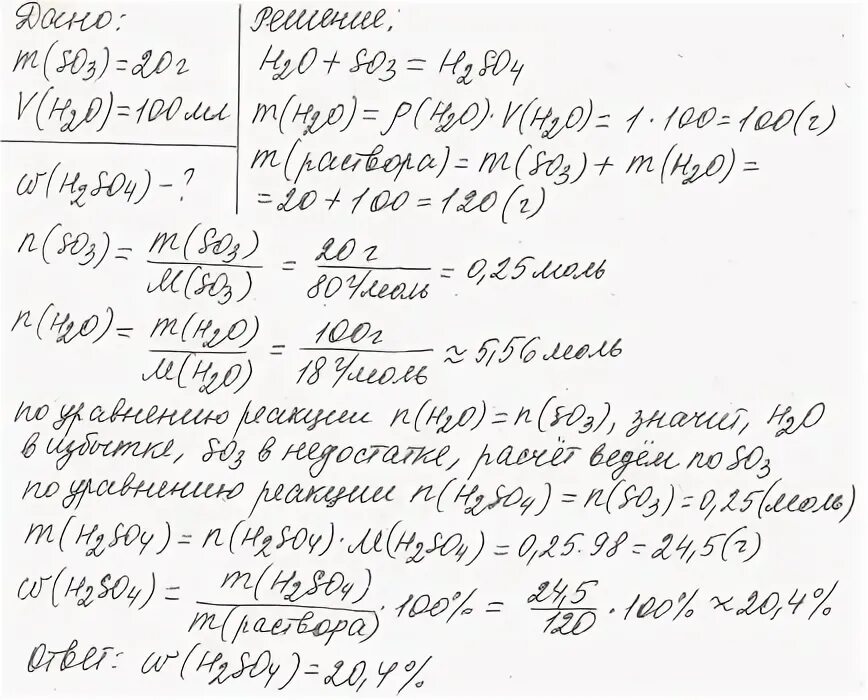 Дано:
m(SO3)=20г
V(H2O)=100мл
w(H2SO4)-?
Решение:
H2O+SO3=H2SO4
m(H2O)=ρ(H2O)·V(H2O)=1·100=100(г)
m(раствора)=m(SO3)+m(H2O)=
=20+100=120(г)
n(SO3)=m(SO3)/M(SO3)=20г/80г/моль=0,25моль
n(H2O)=m(H2O)/M(H2O)=100г/18г/моль≈5,56моль
по уравнению реакции n(H2O)=n(SO3), значит, H2O
в избытке, SO3 в недостатке, расчёт ведём по SO3
по уравнению реакции n(H2SO4)=n(SO3)=0,25(моль)
m(H2SO4)=n(H2SO4)·M(H2SO4)=0,25·98=24,5(г)
w(H2SO4)=m(H2SO4)/m(раствора)·100%=24,5/120·100%≈20,4%
Ответ: w(H2SO4)=20,4%